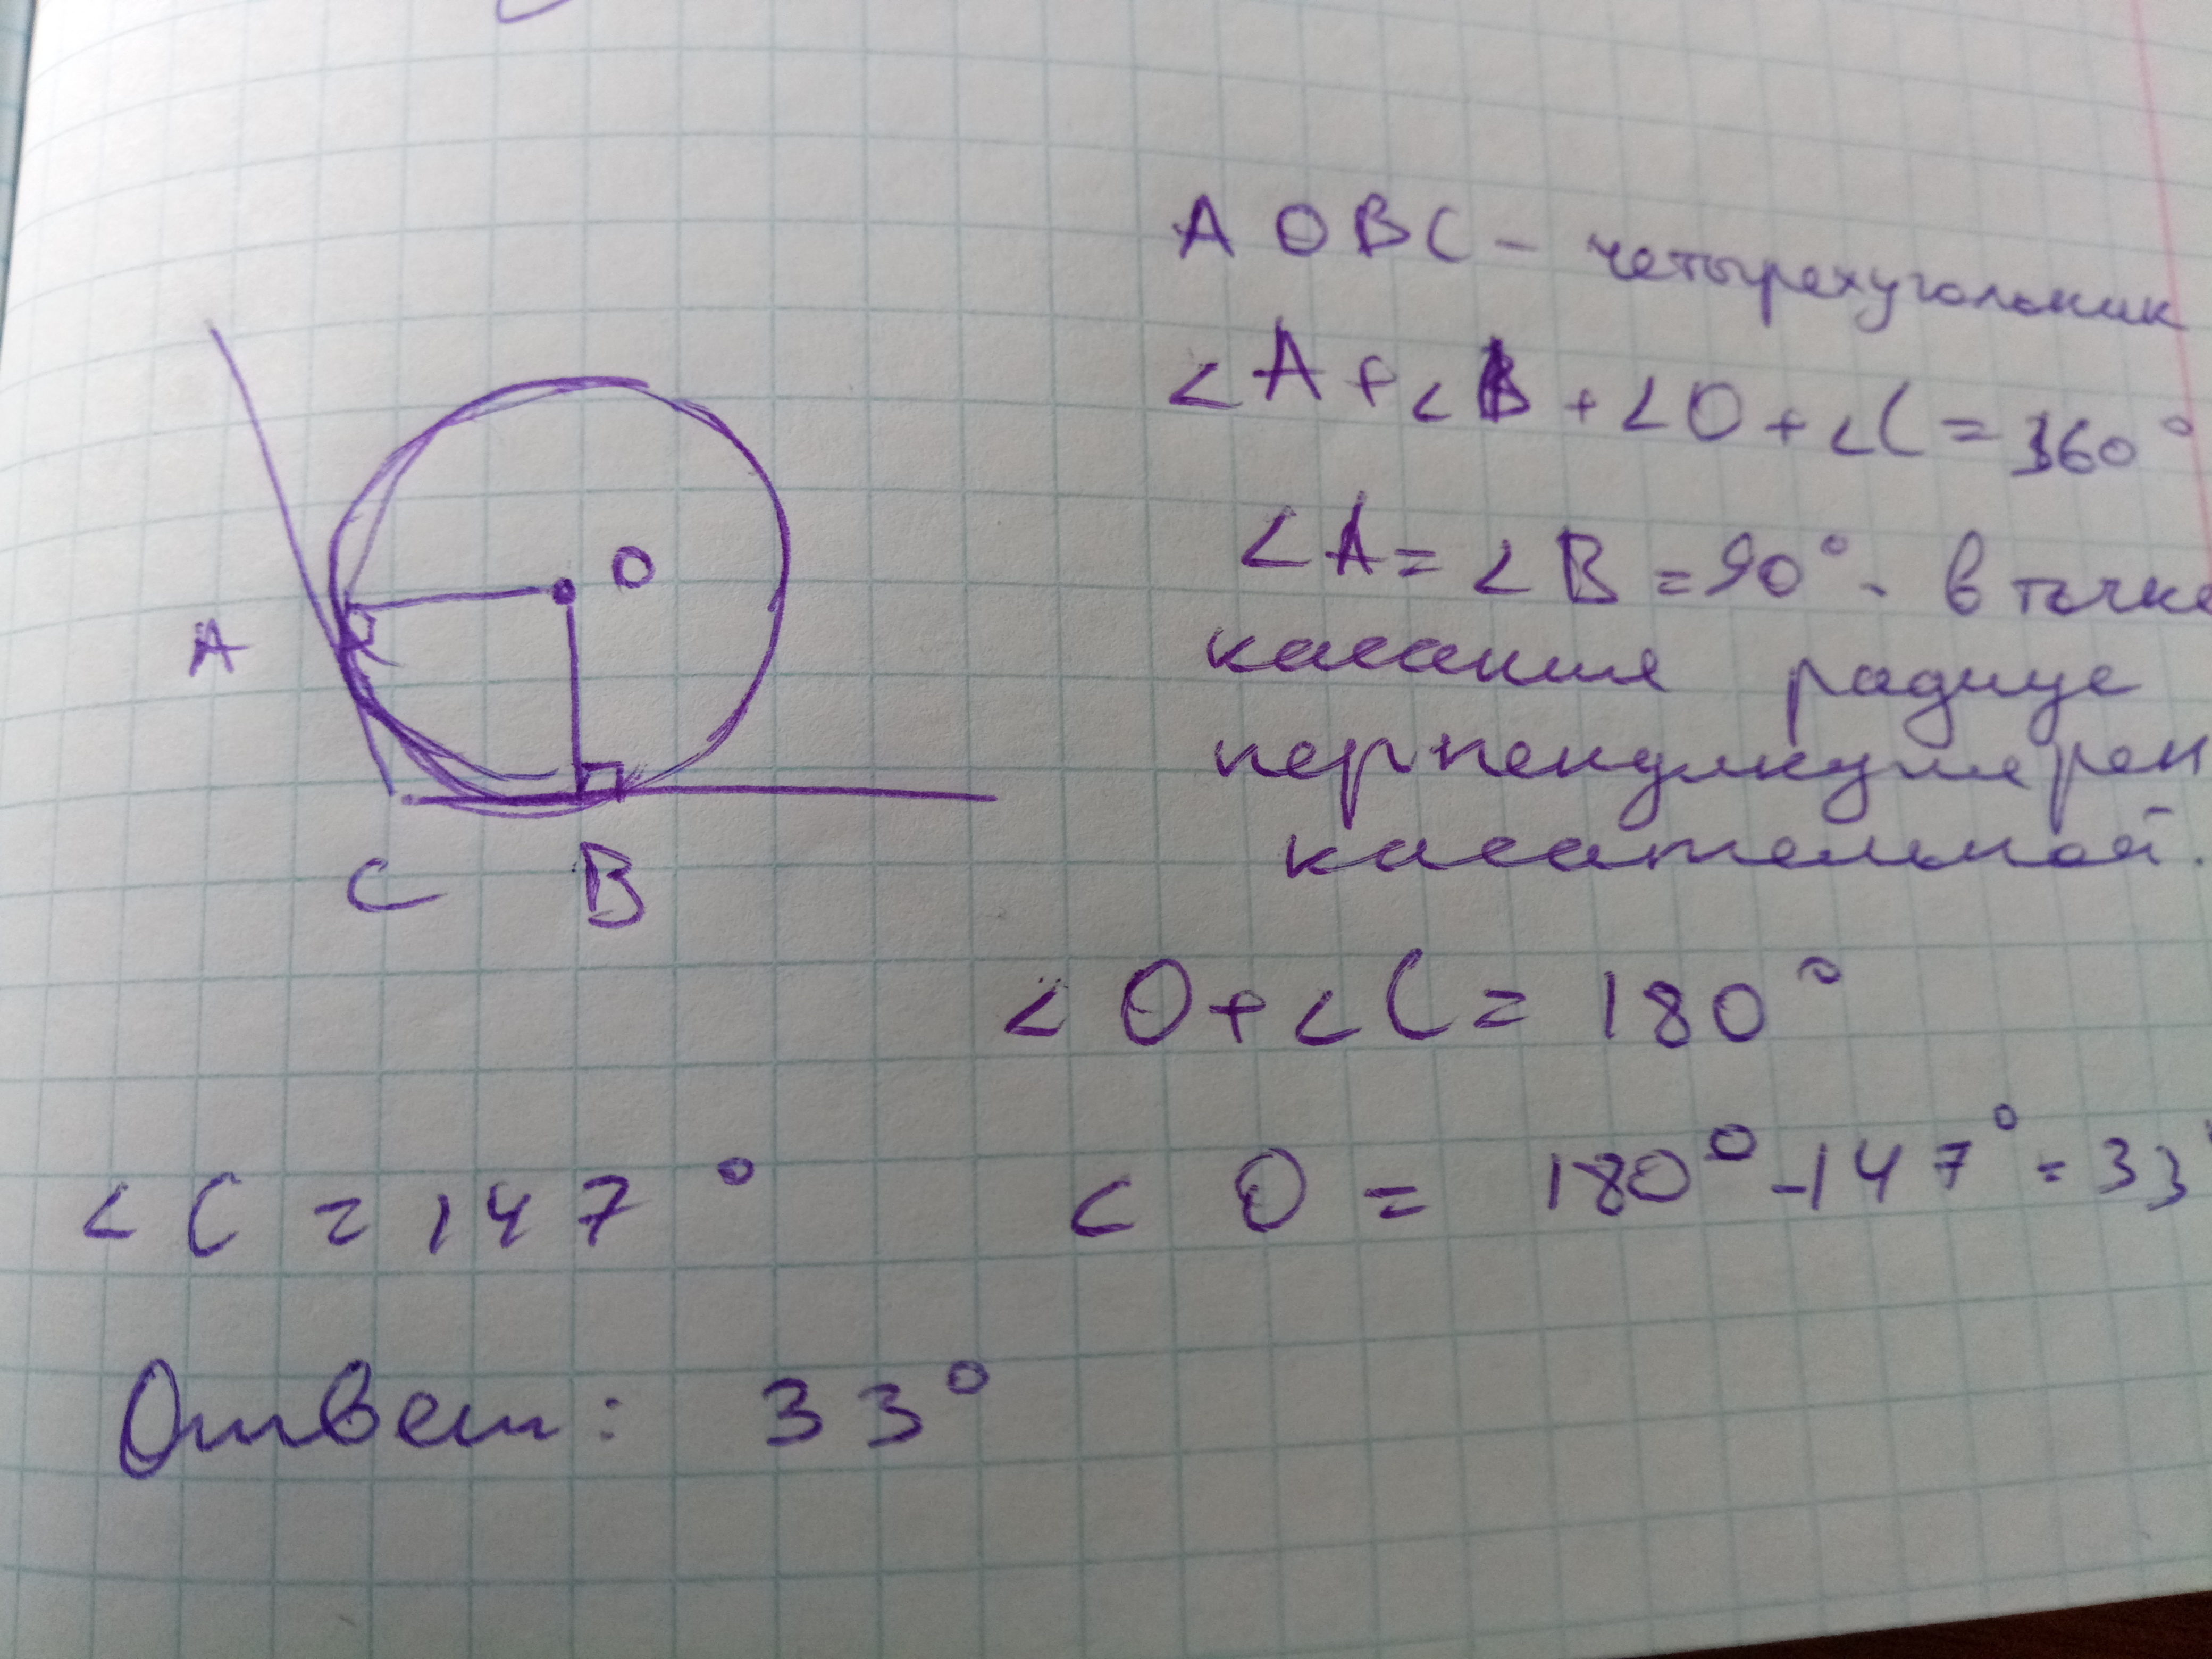 AOBC - четырехугольник
∠A + ∠B + ∠O + ∠C = 360°
∠A = ∠B = 90° - в точке
касания радиус
перпендикулярен
касательной.
O
A
C
B
∠O + ∠C = 180°
∠C = 147°
∠O = 180° - 147° = 33°
Ответ: 33°